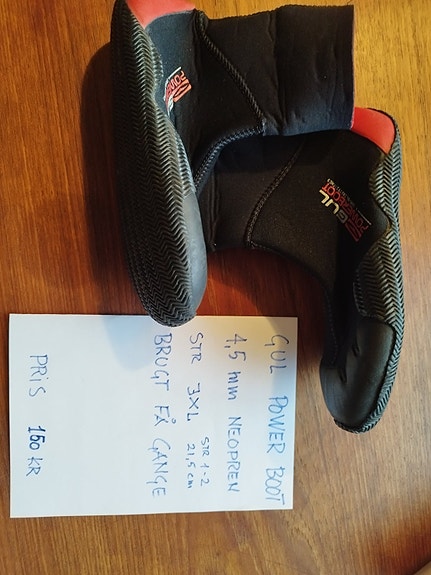 GUL POWER BOOT
4,5 mm NEOPREN
STR 3XL STR 1-2
21,5 cm
BRUGT FÅ GANGE
PRIS 150 KR
GUL
POWERBOOT